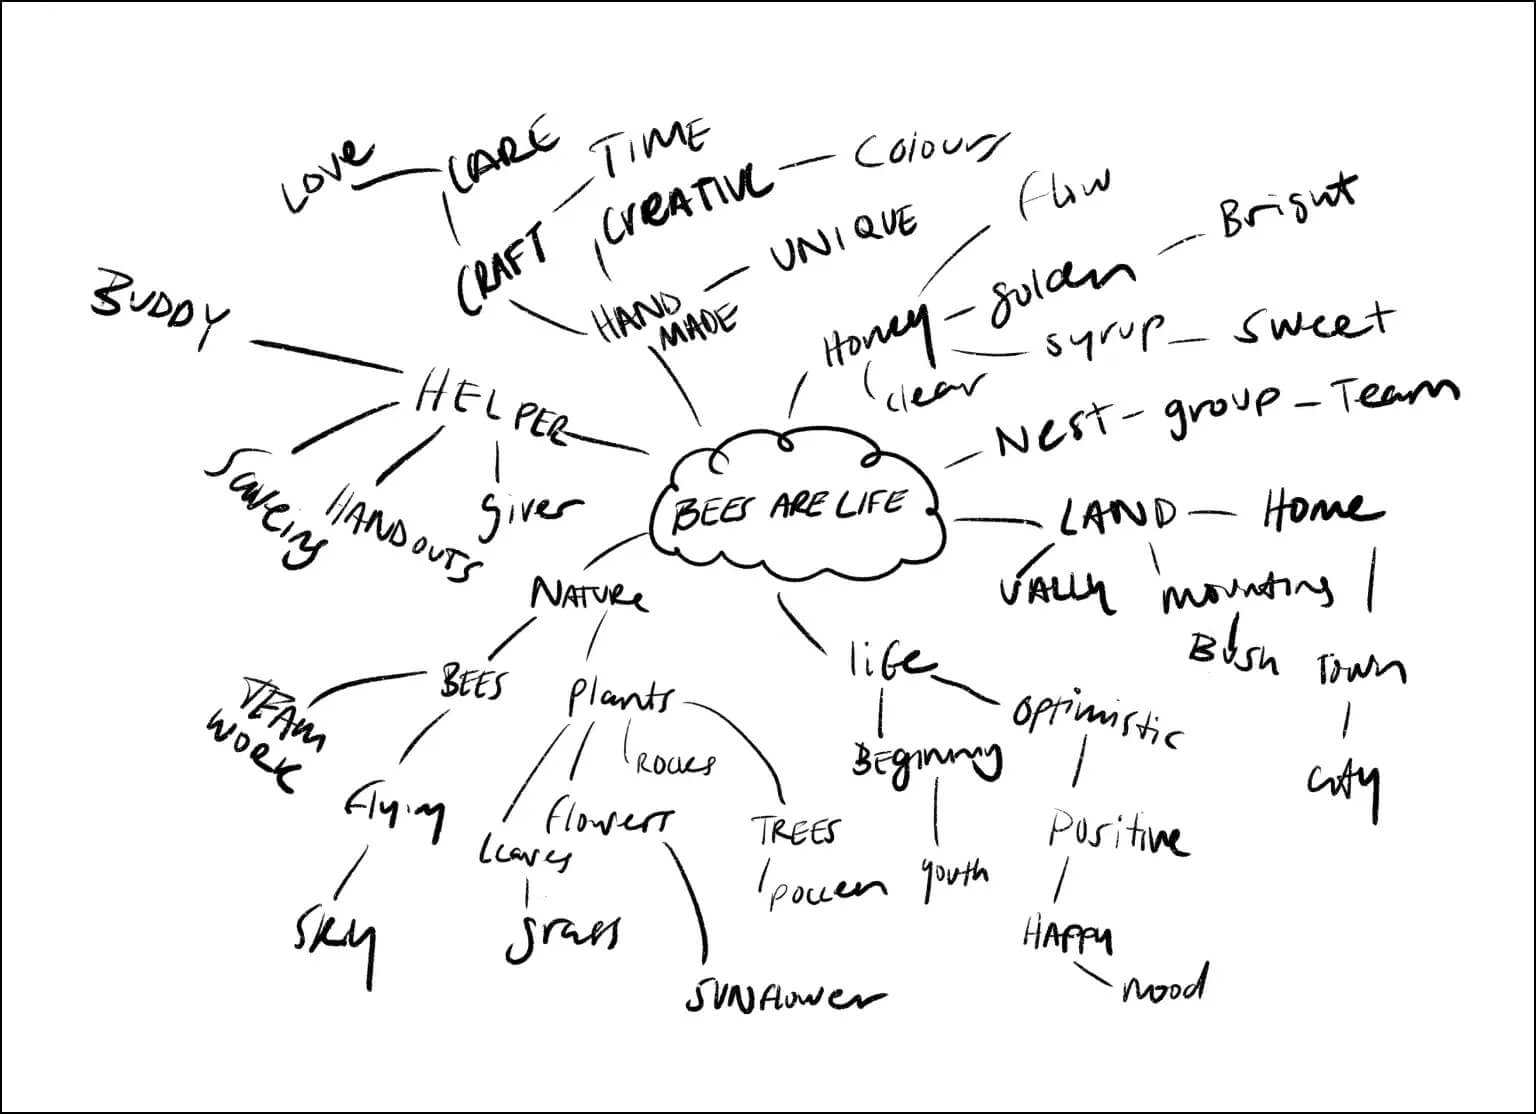 LOVE
CARE
TIME
CREATIVE
Colours
CRAFT
HAND
MADE
UNIQUE
Flow
Honey
golden
Bright
syrup
sweet
clear
Nest - group - Team
BUDDY
HELPER
HANDOUTS
giver
BEES ARE LIFE
LAND
Home
VALLY
Bush
Town
City
NATURE
BEES
TEAM
WORK
Flying
Sky
Plants
ROCKS
Leaves
grass
flowers
SUNflower
TREES
POLLEN
life
BEginning
youth
OPTimistic
Positive
HAPPY
mood